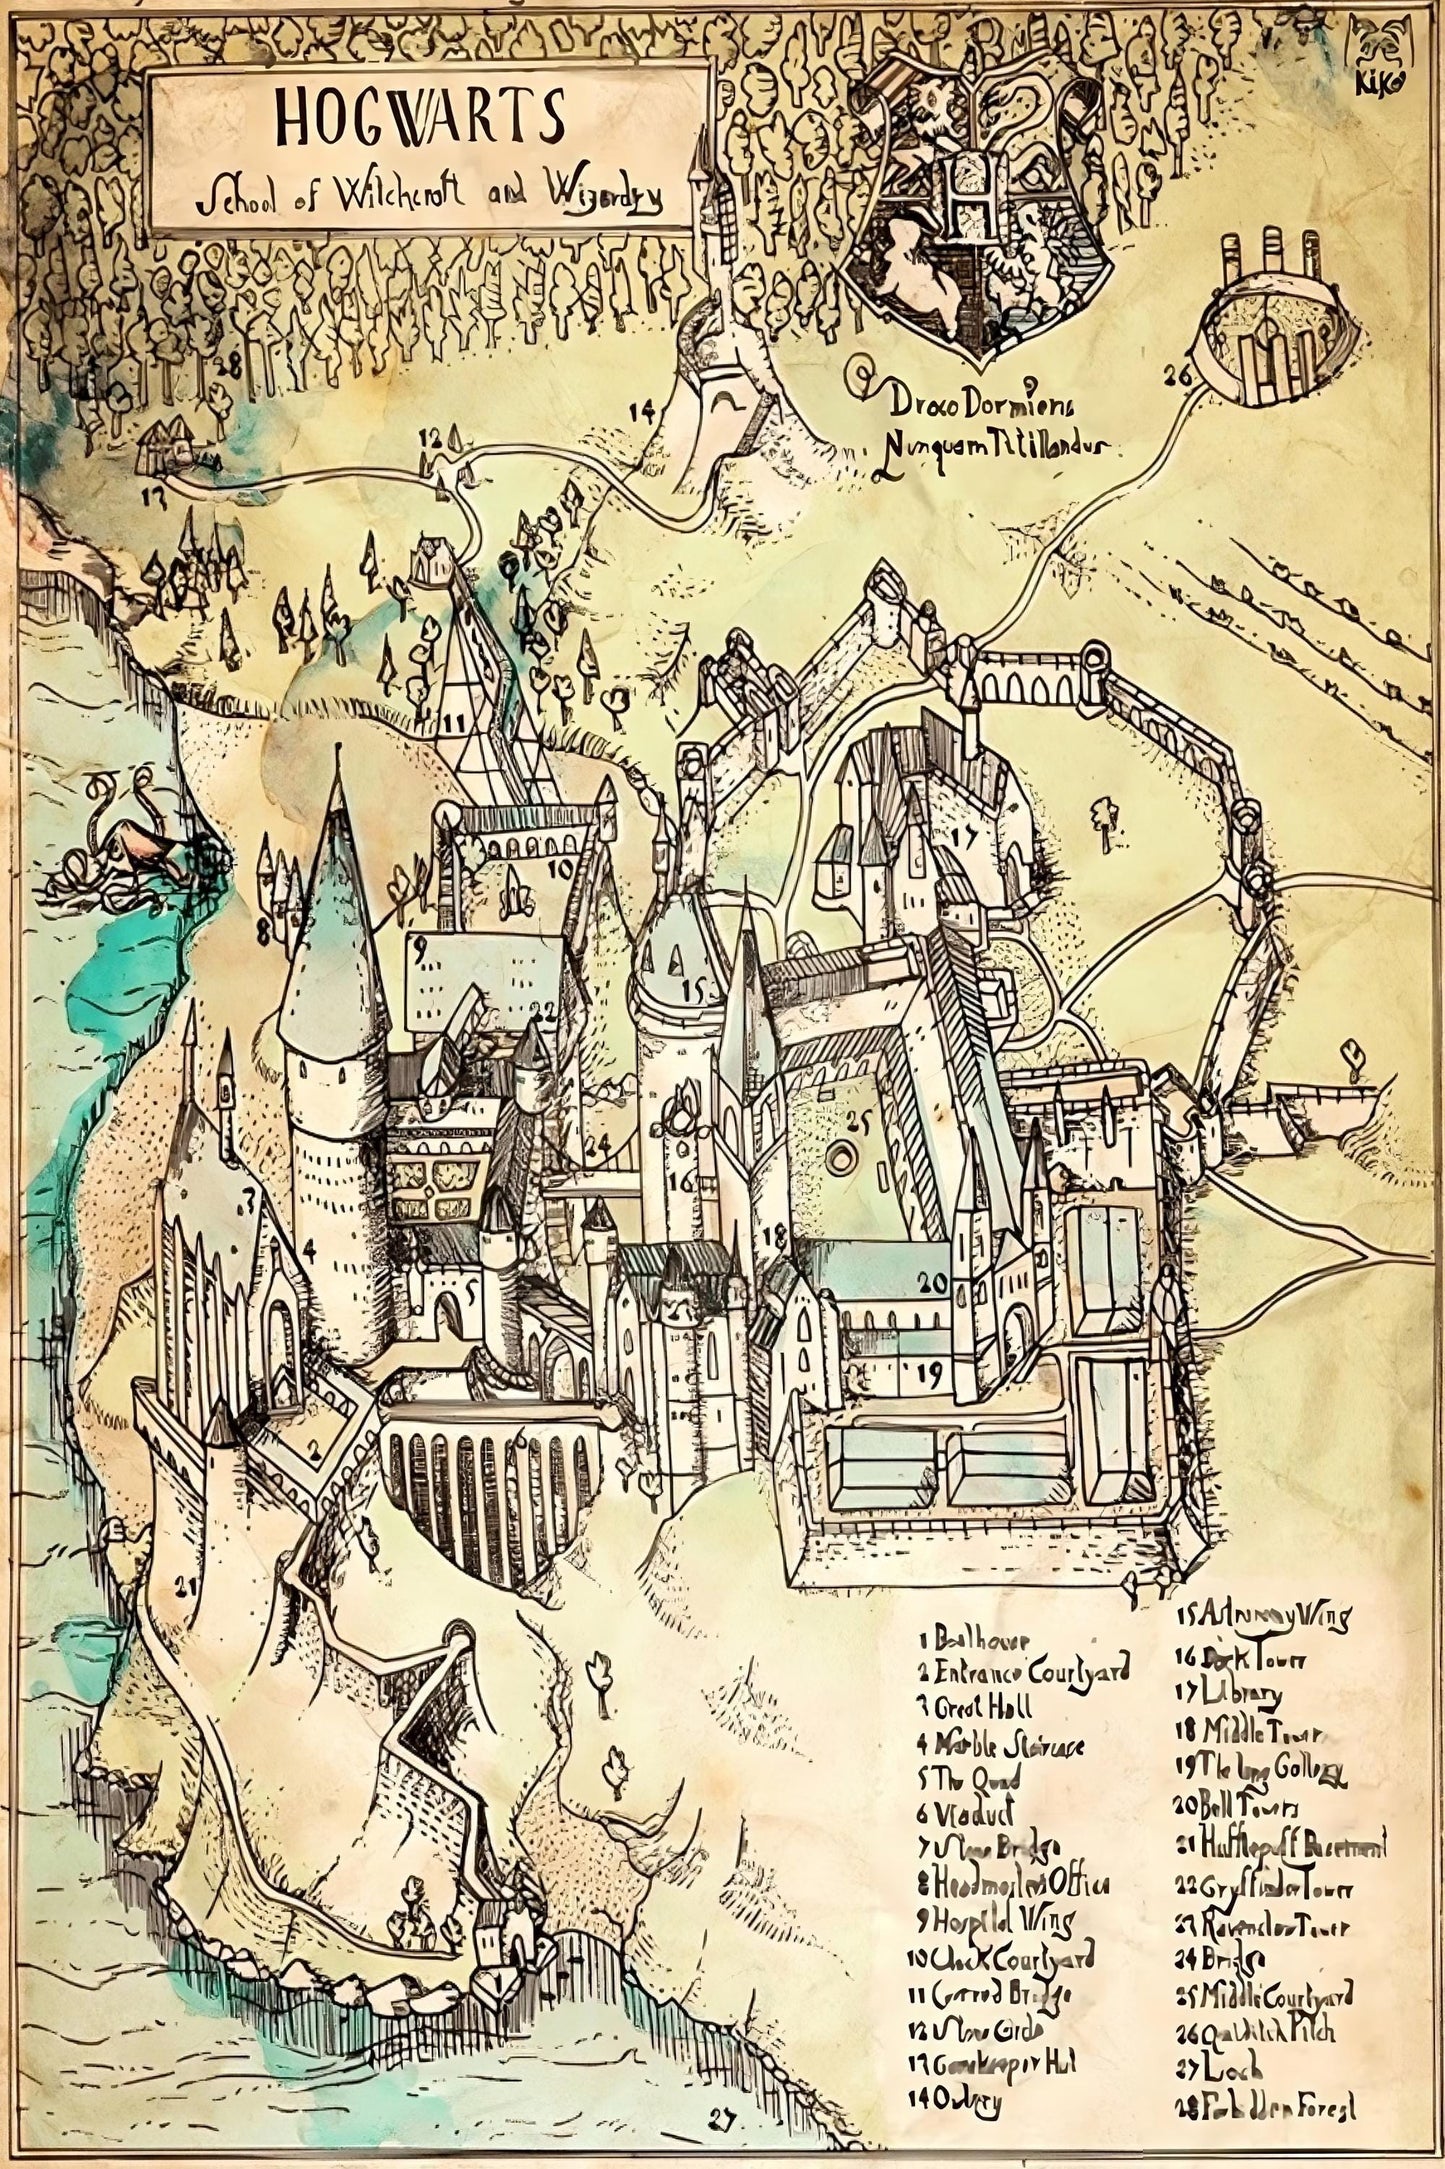 HOGWARTS
School of Witchcraft and Wizardry
KiKo
Draco Dormiens
Nunquam Titillandus
28
26
14
12
13
11
10
17
9
8
22
15
25
24
16
3
4
18
5
20
19
6
2
21
27
1 Boathouse
2 Entrance Courtyard
3 Great Hall
4 Marble Staircase
5 The Quad
6 Viaduct
7 Stone Bridge
8 Headmasters Office
9 Hospital Wing
10 Clock Courtyard
11 Covered Bridge
12 Stone Circle
13 Gamekeeper Hut
14 Owlery
15 Astronomy Wing
16 Tower
17 Library
18 Middle Tower
19 The long Gallery
20 Bell Towers
21 Hufflepuff Basement
22 Gryffindor Tower
23 Ravenclaw Tower
24 Bridge
25 Middle Courtyard
26 Quidditch Pitch
27 Loch
28 Forbidden Forest